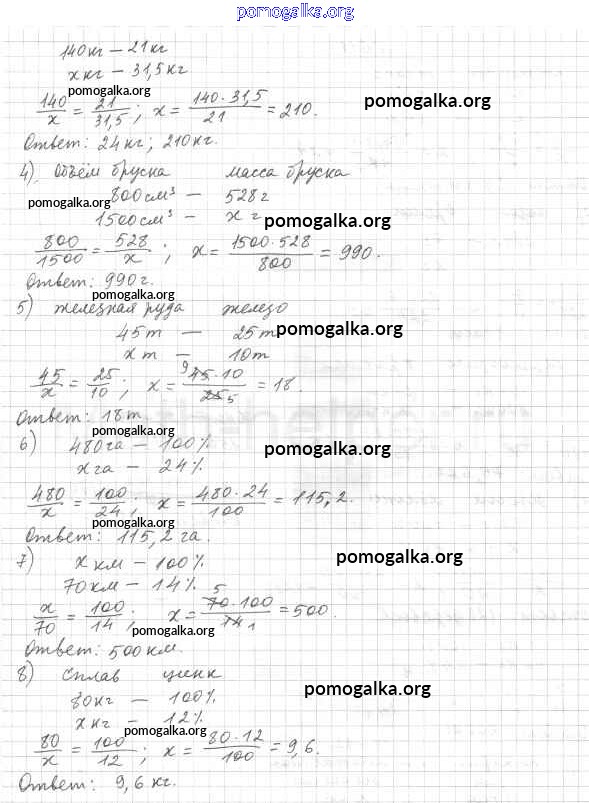 pomogalka.org
140 кг — 21 кг
x кг — 31,5 кг
pomogalka.org
140/x = 21/31,5; x = 140·31,5/21 = 210.
pomogalka.org
Ответ: 24 кг; 210 кг.
4) Объём бруска масса бруска
800 см³ — 528 г
pomogalka.org
1500 см³ — x г
pomogalka.org
800/1500 = 528/x; x = 1500·528/800 = 990.
Ответ: 990 г.
pomogalka.org
5) железная руда железо
45 т — 25 т
pomogalka.org
x т — 10 т
45/x = 25/10; x = 9 45·10/25 5 = 18.
Ответ: 18 т.
pomogalka.org
6) 480 га — 100%
pomogalka.org
x га — 24%
480/x = 100/24; x = 480·24/100 = 115,2.
pomogalka.org
Ответ: 115,2 га.
7) x км — 100%
pomogalka.org
70 км — 14%
x/70 = 100/14; x = 5 70·100/14 1 = 500.
pomogalka.org
Ответ: 500 км.
8) Сплав цинк
80 кг — 100%
pomogalka.org
x кг — 12%
pomogalka.org
80/x = 100/12; x = 80·12/100 = 9,6.
Ответ: 9,6 кг.